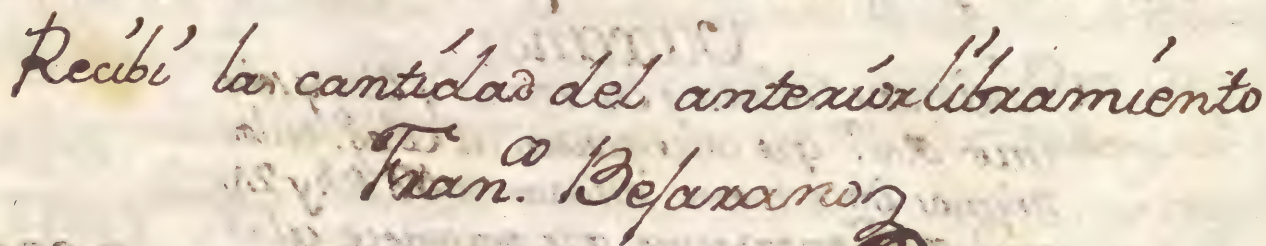 Recibí la cantidad del anterior libramiento
Fran.co Bejarano